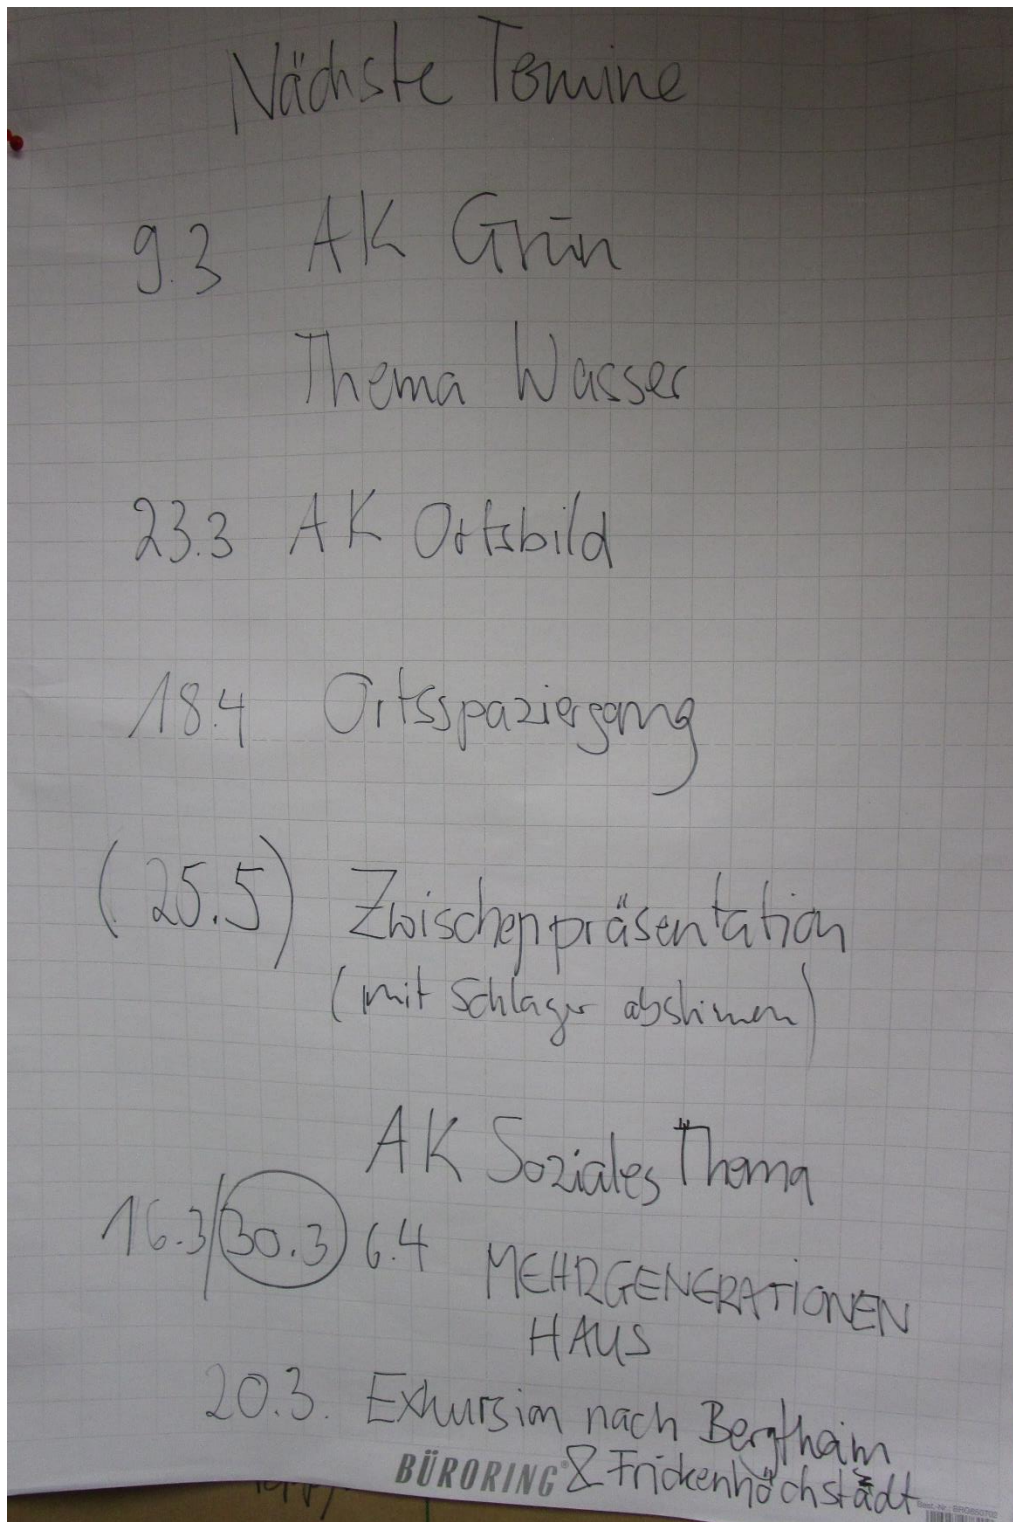 Nächste Termine
9.3 AK Grün
Thema Wasser
23.3 AK Ortsbild
18.4 Ortsspaziergang
(25.5) Zwischenpräsentation
(mit Schlager abstimmen)
AK Soziales Thema
16.3/30.3 6.4 MEHRGENERATIONEN
HAUS
20.3. Exkursion nach Bergtheim
BÜRORING & Frickenhöchstädt